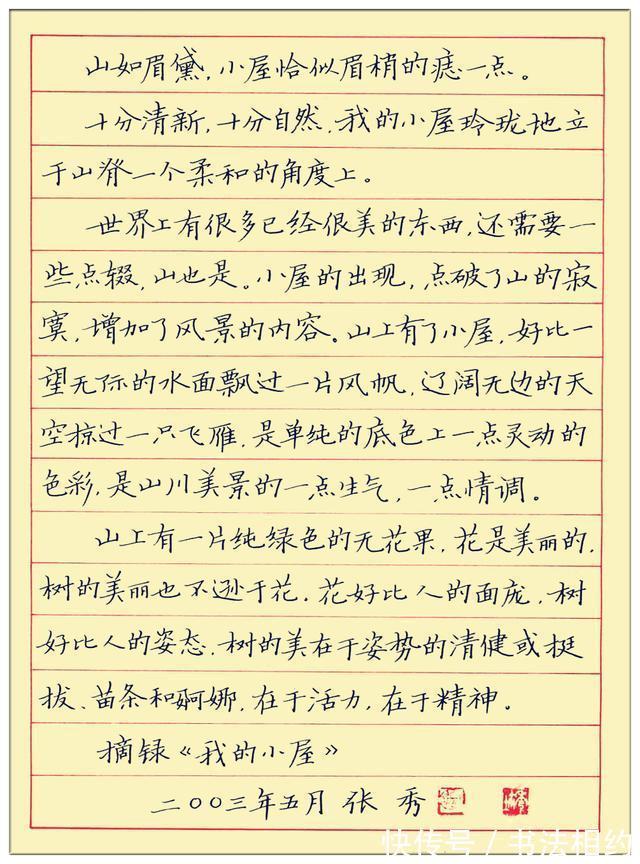 山如眉黛,小屋恰似眉梢的痣一点。
十分清新,十分自然,我的小屋玲珑地立
于山脊一个柔和的角度上。
世界上有很多已经很美的东西,还需要一
些点缀,山也是。小屋的出现,点破了山的寂
寞,增加了风景的内容。山上有了小屋,好比一
望无际的水面飘过一片风帆,辽阔无边的天
空掠过一只飞雁,是单纯的底色上一点灵动的
色彩,是山川美景的一点生气,一点情调。
山上有一片纯绿色的无花果,花是美丽的,
树的美丽也不逊于花。花好比人的面庞,树
好比人的姿态,树的美在于姿势的清健或挺
拔、苗条和婀娜,在于活力,在于精神。
摘录《我的小屋》
二〇〇三年五月 张秀
快传号/书法相约